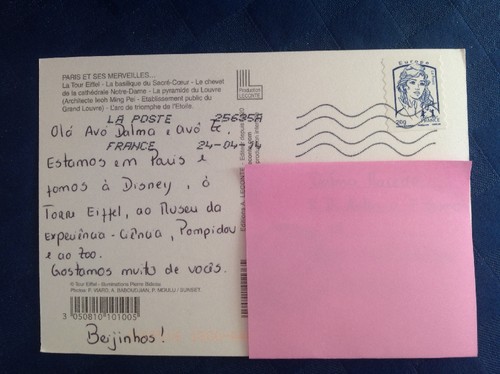 PARIS ET SES MERVEILLES...
La Tour Eiffel - La basilique du Sacré-Cœur - Le chevet
de la cathédrale Notre-Dame - La pyramide du Louvre
(Architecte Ieoh Ming Pei - Etablissement public du
Grand Louvre) - L'arc de triomphe de l'Etoile.
LA POSTE 25636A
FRANCE 24-04-14
Olá Avó Dalma e avô
Estamos em Paris e
fomos à Disney, à
Torre Eiffel, ao Museu da
Experiência - Ciência, Pompidou
e ao Zoo.
Gostamos muito de vocês.
© Tour Eiffel - Illuminations Pierre Bideau
Photos: P. VIARD, A. BABOUDJIAN, P. MOULU / SUNSET.
3 050810 101005
Beijinhos!
Production
LECONTE
Editions A. LECONTE
Europe
20g
FRANCE